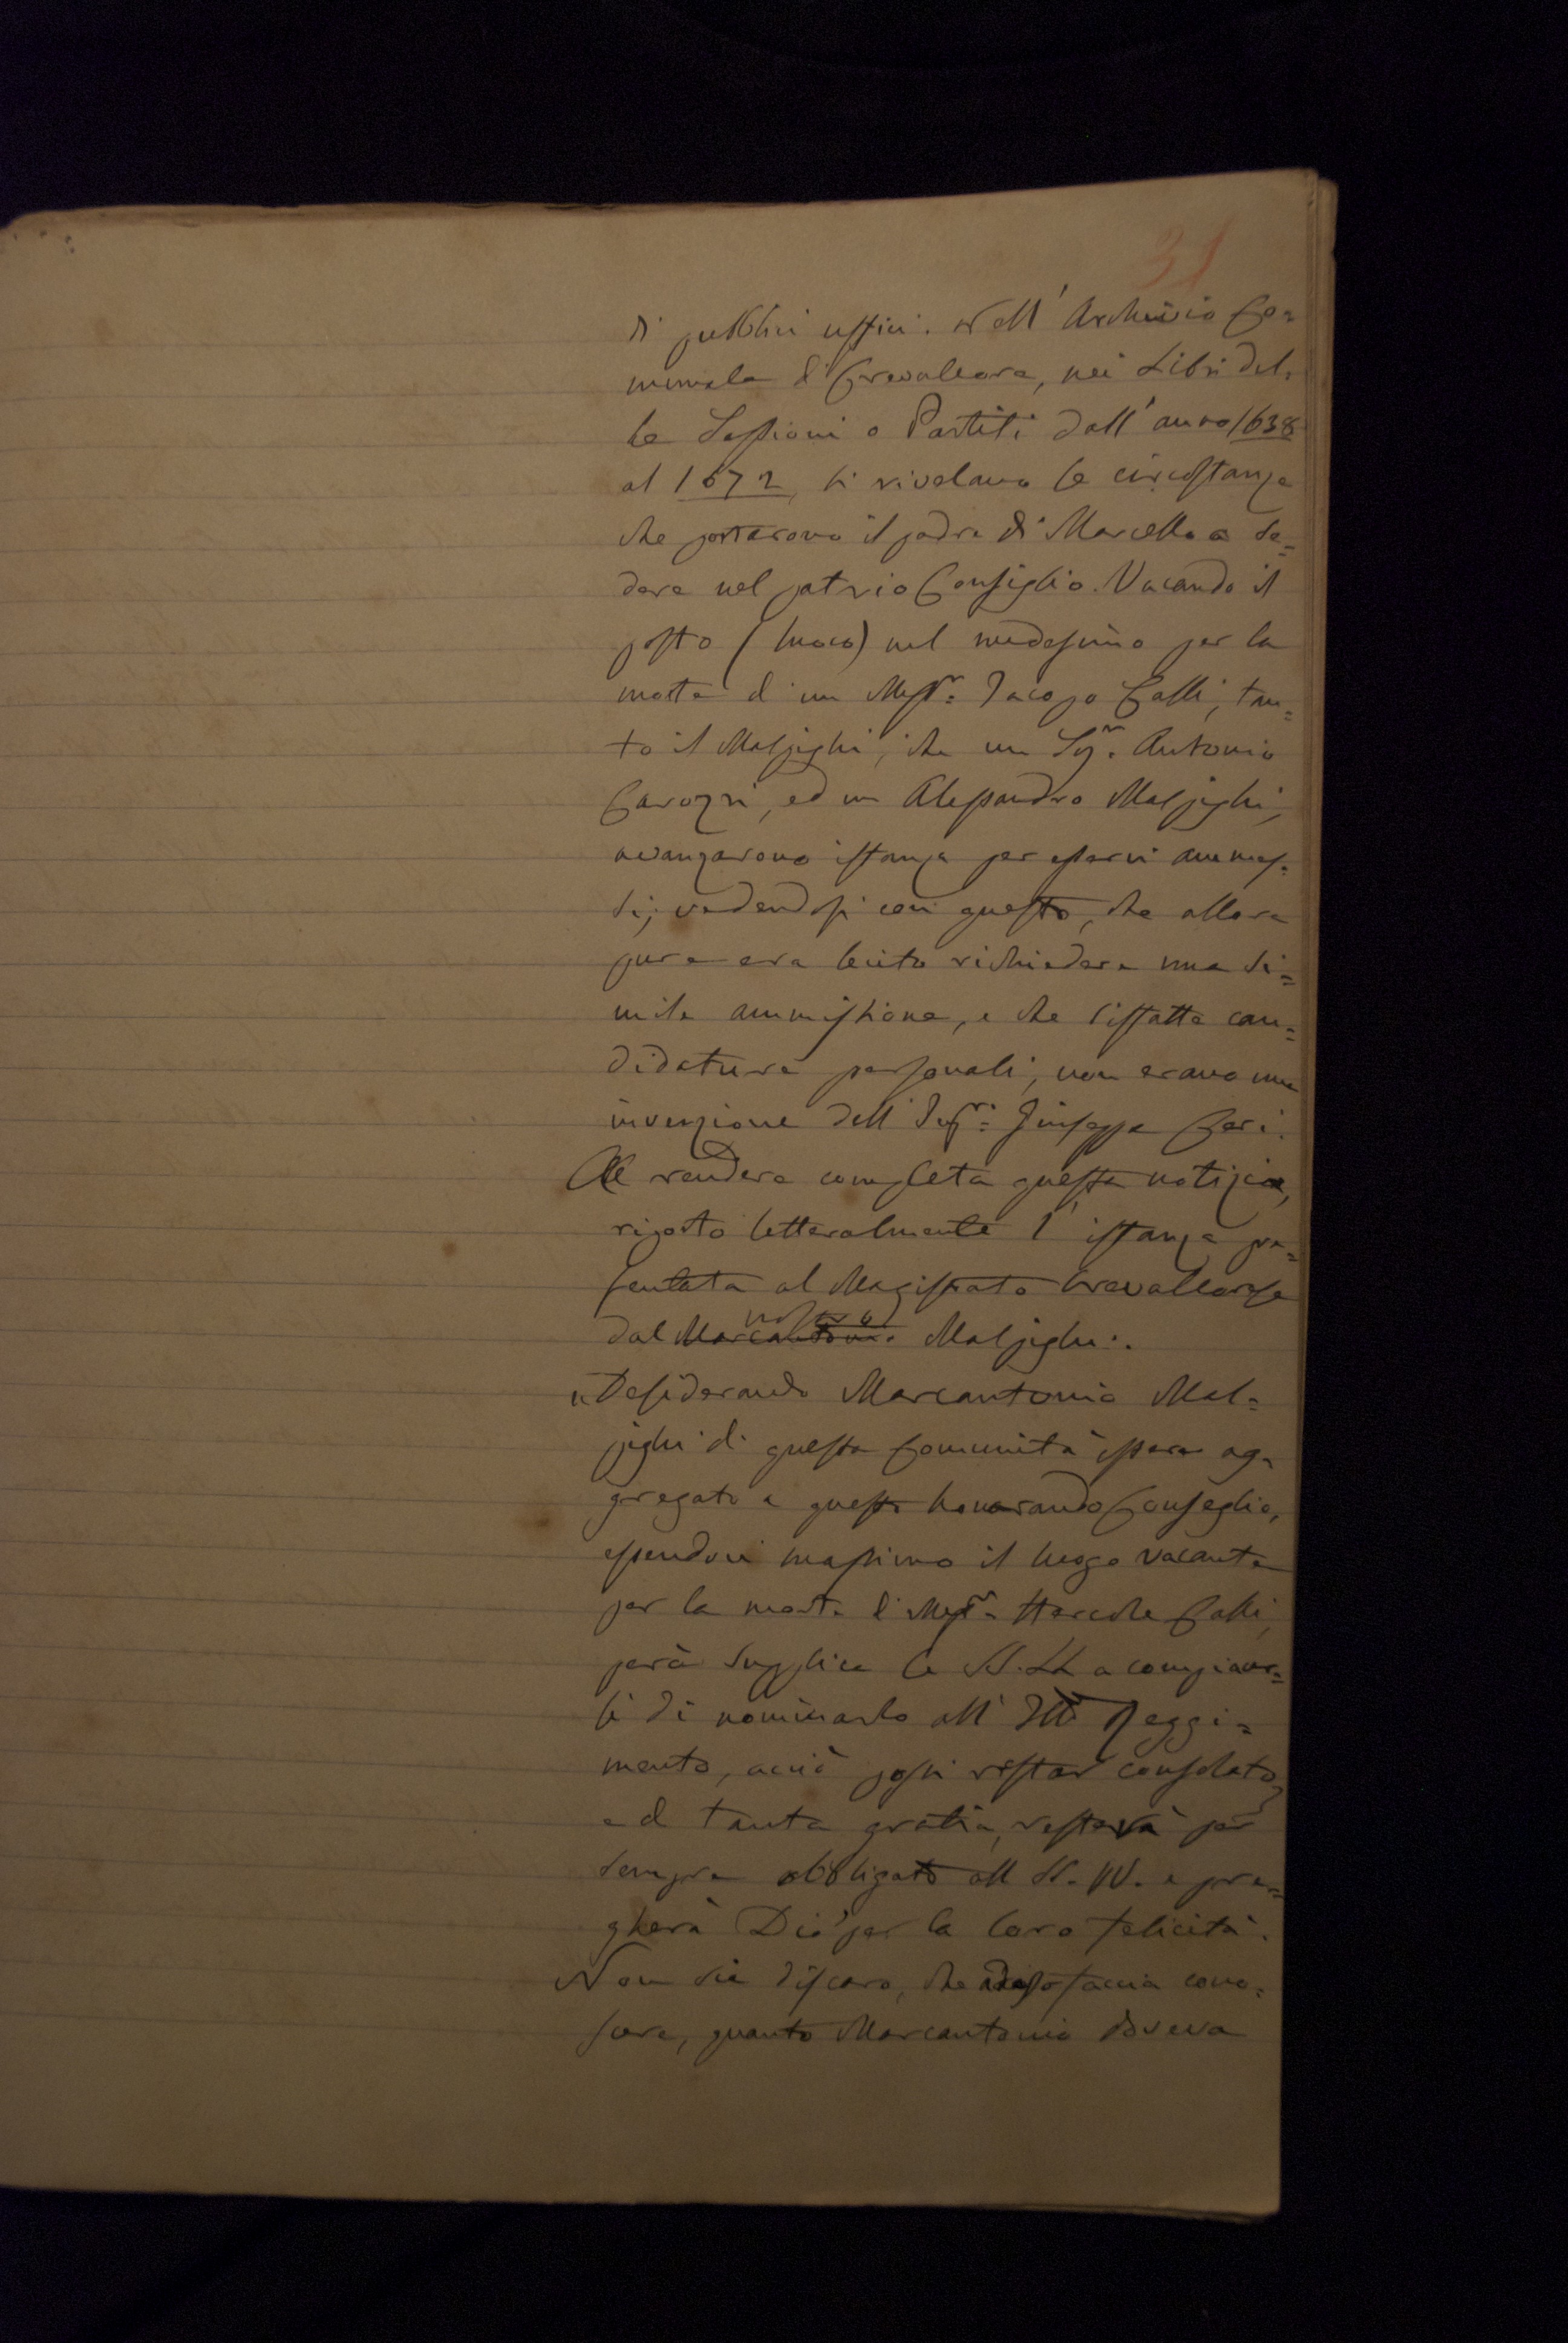 31
di pubblici uffici. Nell' Archivio Co=
munale di Crevalcore, nei Libri del=
le Sessioni o Partiti dall' anno 1638
al 1672, si rivelano le circostanze
che portarono il padre di Marcello a se=
dere nel patrio Consiglio. Vacando il
posto (luoco) nel medesimo per la
morte di un Messr: Jacopo Calli, tan=
to il Malpighi, che un Sigr. Antonio
Carozzi, ed un Alessandro Malpighi,
avanzarono istanza per esservi ammes=
si; vedendosi con questo, che allora
pure era lecito richiedere una si=
mile ammissione, e che siffatte can=
didature personali, non erano una
invenzione dell' Ingr: Giuseppe Ceri.
A rendere completa questa notizia,
riporto letteralmente l' istanza pre=
sentata al Magistrato Crevalcorese
dal Marcantonio nostro Malpighi:.
"Desiderando Marcantonio Mal=
pighi di questa Comunità essere ag=
gregato a questo honorando Conseglio,
essendovi massimo il luogo vacante
per la morte di Messr: Hercole Calli,
però supplica le SS. LL a compiacer=
si di nominarlo all' Ill Reggi=
mento, acciò possi restar consolato,
ed tanta gratia, resterà per
sempre obbligato all SS. VV. e pre=
gherà Dio per la loro felicità.
Non sia discaro, che adesso faccia cono=
scere, quanto Marcantonio doveva